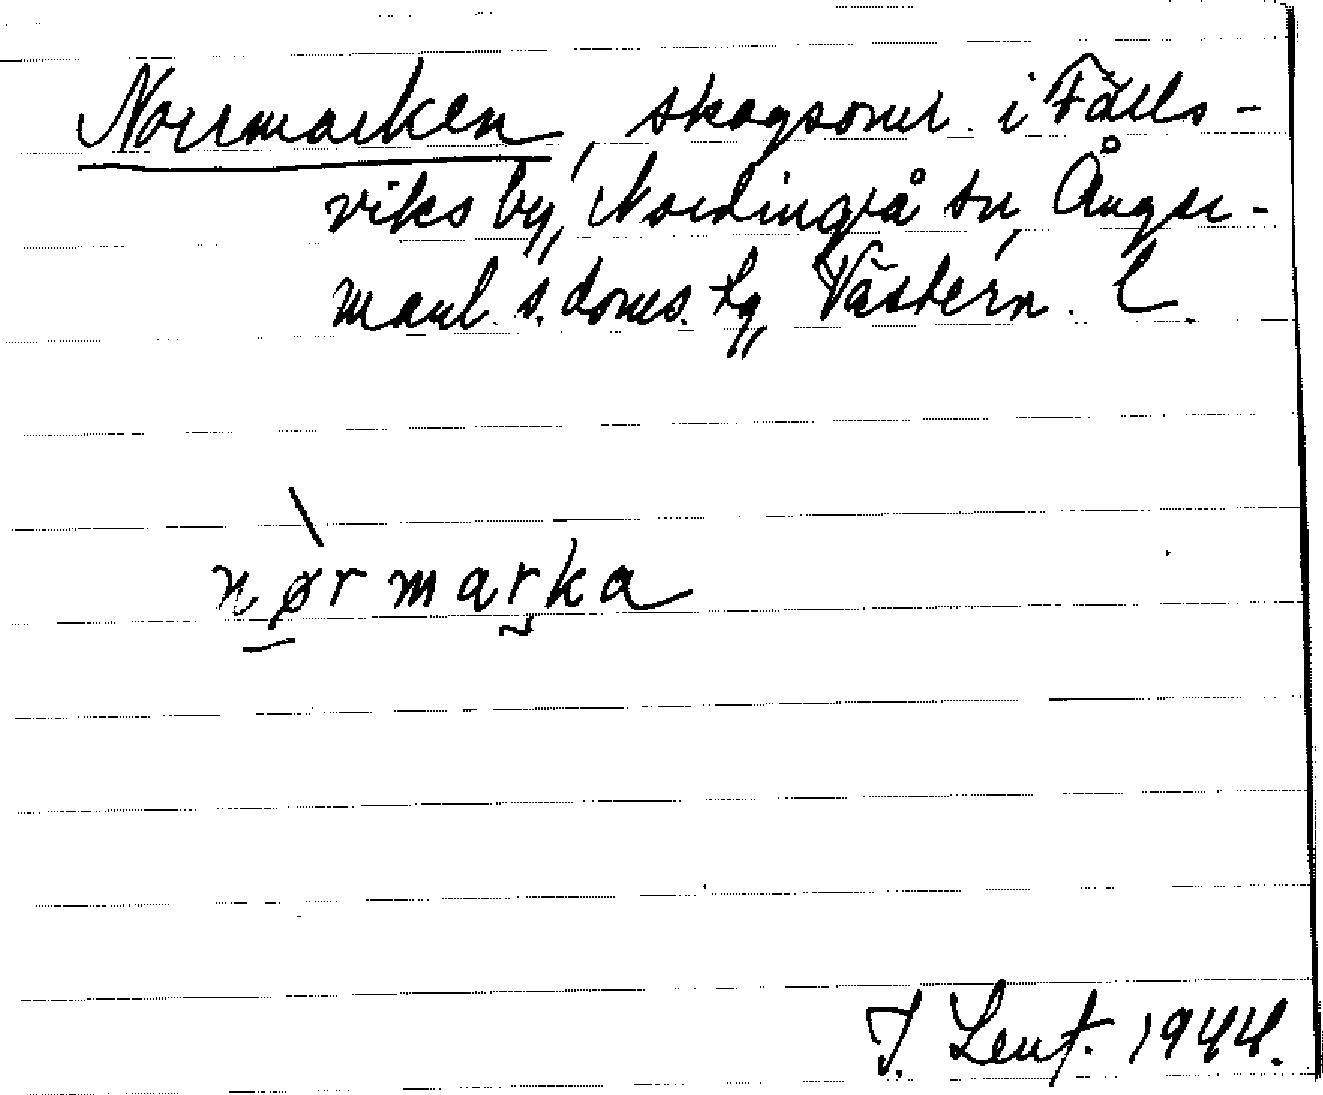 Norrmarken, skogsområ. i Fälls-
viks by, Nordingrå sn, Ånger-
manl. s. doms. tg, Västern. l.
nørmarka
J. Lenf. 1944.